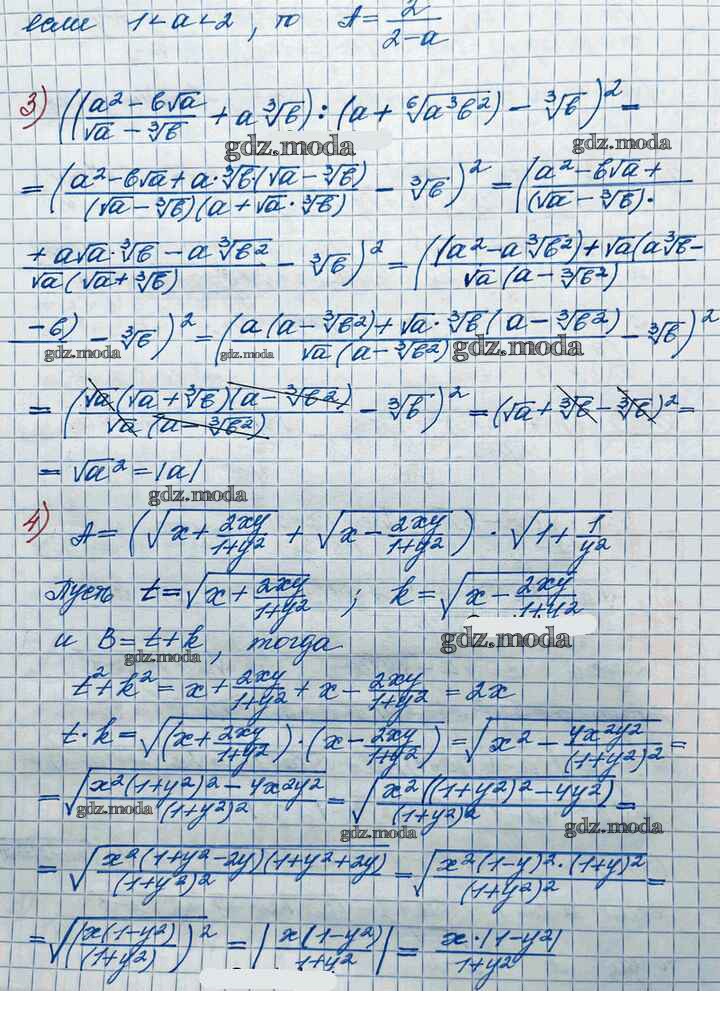 если 1<a<2, то A=2/(2-a)
3) (((a²-b√a)/(√a-∛b)+a∛b):(a+⁶√(a³b²))-∛b)²=
gdz.moda gdz.moda
=((a²-b√a+a·∛b(√a-∛b))/((√a-∛b)(a+√a·∛b))-∛b)²=((a²-b√a+/(√a-∛b)·
+a√a·∛b-a∛b²/√a(√a+∛b)-∛b)²=(((a²-a∛b²)+√a(a∛b-/√a(a-∛b²)
-b)/-∛b)²=((a(a-∛b²)+√a·∛b(a-∛b²))/(√a(a-∛b²))-∛b)²
gdz.moda gdz.moda gdz.moda
=((√a(√a+∛b)(a-∛b²))/(√a(a-∛b²))-∛b)²=(√a+∛b-∛b)²=
=√a²=|a|
gdz.moda
4) A=(√(x+2xy/(1+y²))+√(x-2xy/(1+y²)))·√(1+1/y²)
Пусть t=√(x+2xy/(1+y²)); k=√(x-2xy/(1+y²))
gdz.moda
и B=t+k, тогда
gdz.moda
t²+k²=x+2xy/(1+y²)+x-2xy/(1+y²)=2x
t·k=√((x+2xy/(1+y²))·(x-2xy/(1+y²)))=√(x²-4x²y²/(1+y²)²)=
=√((x²(1+y²)²-4x²y²)/(1+y²)²)=√((x²((1+y²)²-4y²))/(1+y²)²)=
gdz.moda gdz.moda gdz.moda
=√((x²(1+y²-2y)(1+y²+2y))/(1+y²)²)=√((x²(1-y)²·(1+y)²)/(1+y²)²)=
=√((x(1-y²)/(1+y²))²)=|x(1-y²)/(1+y²)|=x·|1-y²|/(1+y²)
gdz.moda